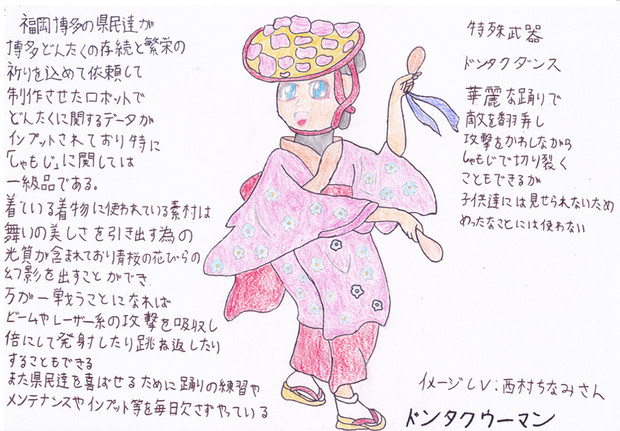 福岡博多の県民達が
博多どんたくの存続と繁栄の
祈りを込めて依頼して
制作させたロボットで
どんたくに関するデータが
インプットされており特に
「しゃもじ」に関しては
一級品である。
着ている着物に使われている素材は
舞いの美しさを引き出す為の
光質が含まれており青桜の花びらの
幻影を出すことができ
万が一戦うことになれば
ビームやレーザー系の攻撃を吸収し
倍にして発射したり跳ね返したり
することもできる
また県民達を喜ばせるために踊りの練習や
メンテナンスやインプット等を毎日欠さずやっている
特殊武器
ドンタクダンス
華麗な踊りで
敵を翻弄し
攻撃をかわしながら
しゃもじで切り裂く
こともできるが
子供達には見せられないため
めったなことには使わない
イメージCV:西村ちなみさん
ドンタクウーマン